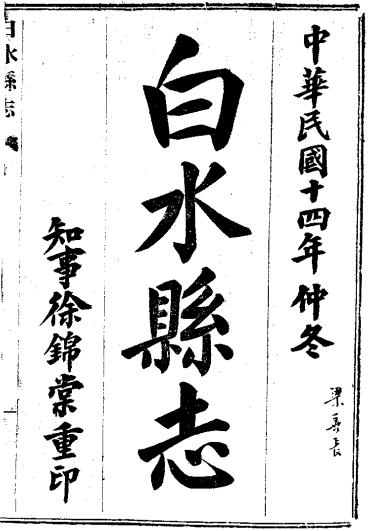 中華民國十四年仲冬
白水縣志
知事徐錦棠重印
白水縣志